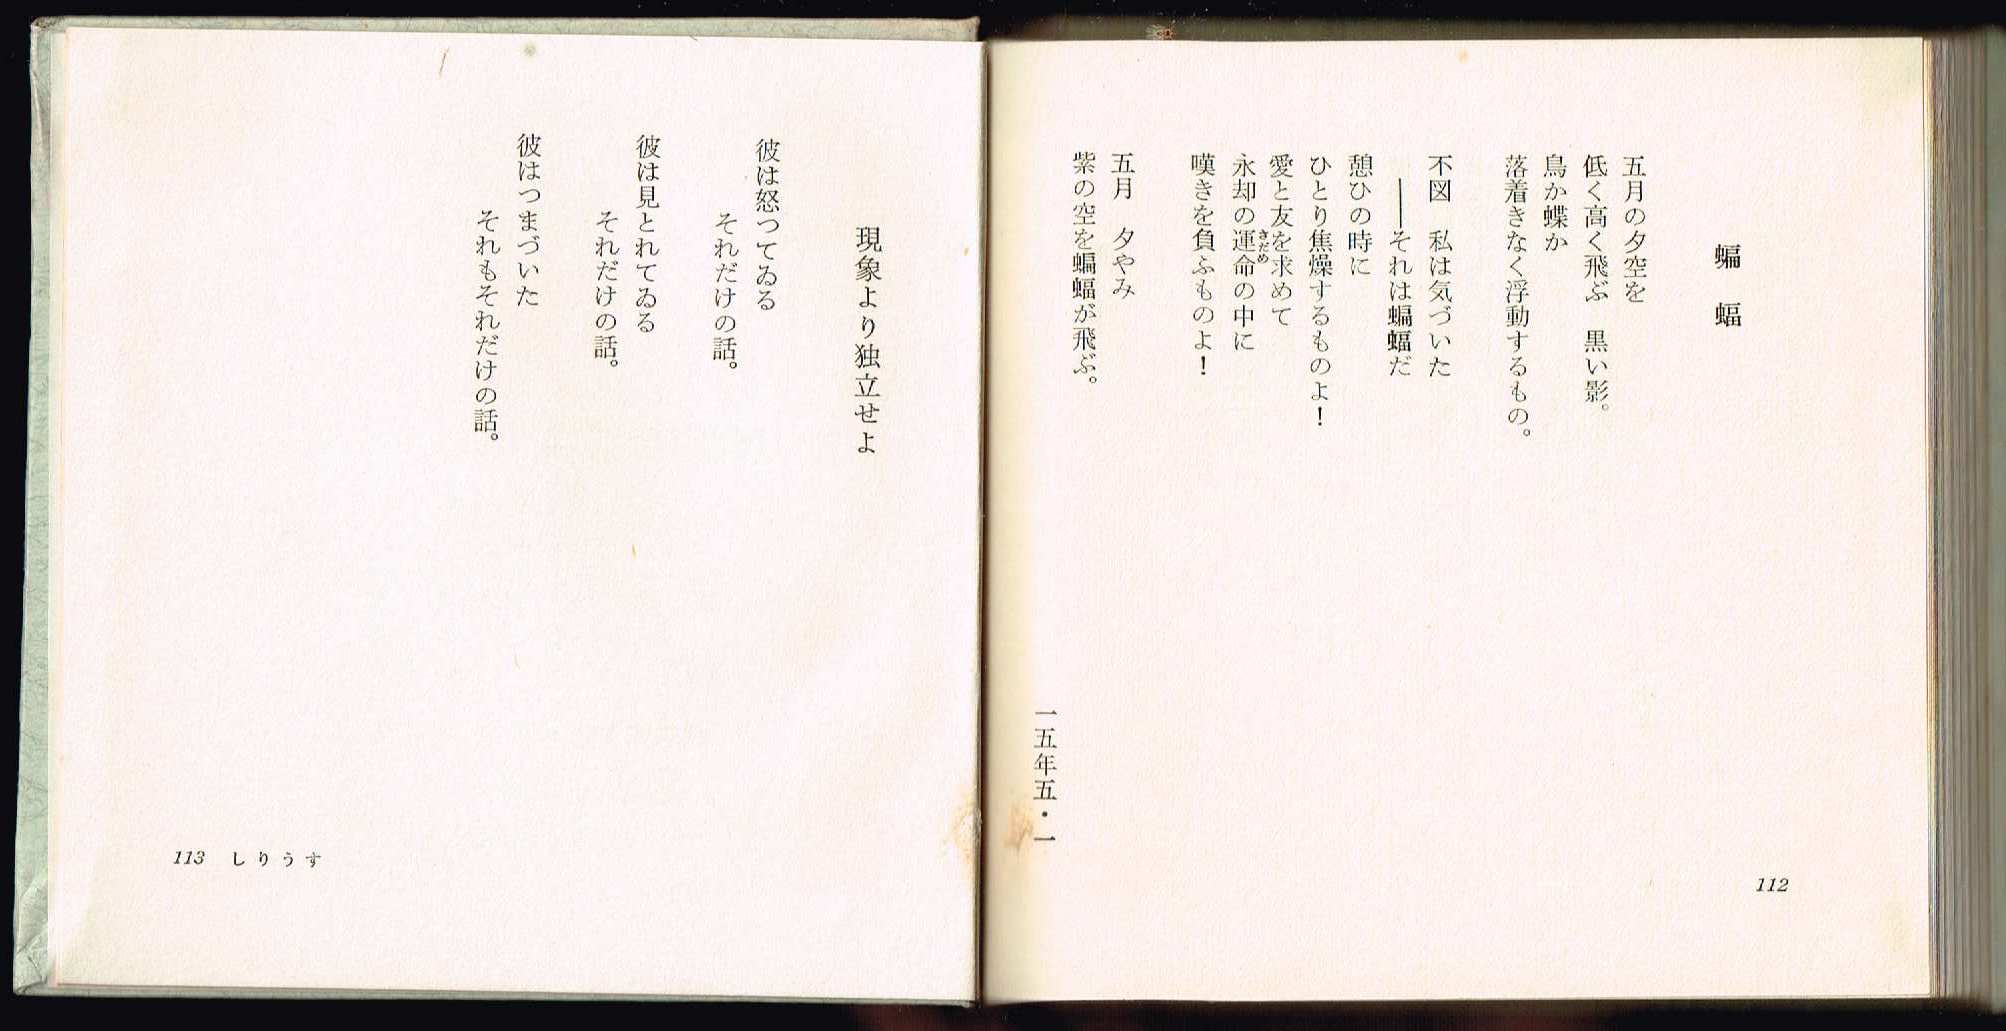 蝙蝠
五月の夕空を
低く高く飛ぶ　黒い影。
鳥か蝶か
落着きなく浮動するもの。
不図　私は気づいた
――それは蝙蝠だ
憩ひの時に
ひとり焦燥するものよ！
愛と友を求めて
永却の運命の中に
さだめ
嘆きを負ふものよ！
五月　夕やみ
紫の空を蝙蝠が飛ぶ。
一五年五・一
112
現象より独立せよ
彼は怒つてゐる
それだけの話。
彼は見とれてゐる
それだけの話。
彼はつまづいた
それもそれだけの話。
113 しりうす